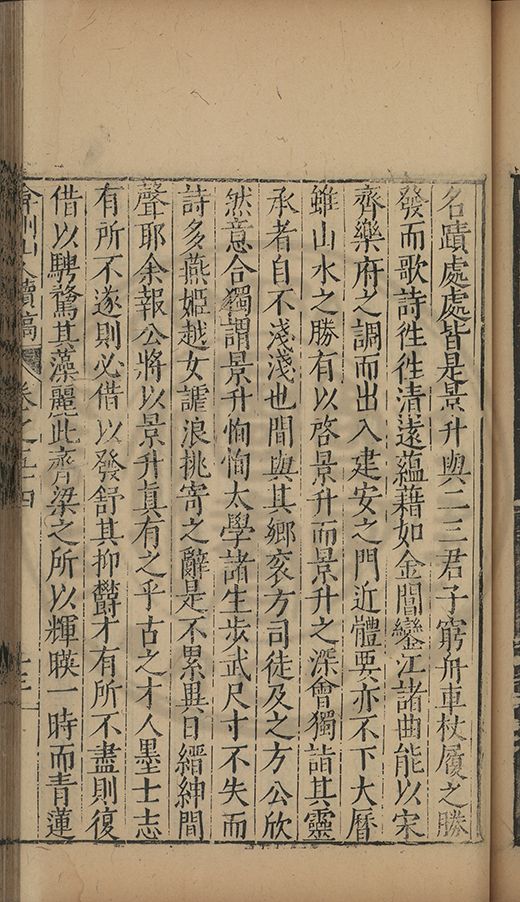 名蹟處處皆是景升與二三君子窮舟車杖履之勝
發而歌詩徃徃清遠蘊藉如金閶孌江諸曲能以宋
齊樂府之調而出入建安之門近體要亦不下大曆
雖山水之勝有以啓景升而景升之深會獨詣其靈
承者自不淺淺也間與其鄉袞方司徒及之方公欣
然意合獨謂景升恂恂太學諸生步武尺寸不失而
詩多燕姬越女謔浪挑寄之辭是不累異日縉紳間
聲耶余報公將以景升真有之乎古之才人墨士志
有所不遂則必借以發舒其抑欝才有所不盡則復
借以騁騖其藻麗此齊梁之所以輝暎一時而青蓮
山人續稿 卷之五十四